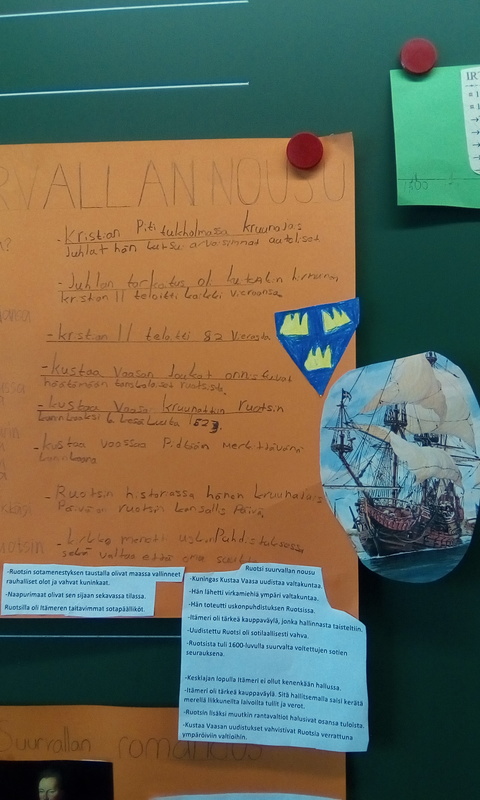 RVALLAN NOUSU
-Kristian Piti tukholmassa kruunajais
Juhlat hän kutsui arvoisimmat aateliset
-Juhlan tarkoitus oli
kristian II teloitti kaikki vieraansa
-kristian II teloitti 82 vierasta
-kustaa Vaasan Joukot onnistuivat
tanskalaiset ruotsista.
-kustaa Vaasa kruunattiin ruotsin
kuninkaaksi 6 kesäkuuta 1523.
-kustaa vaasaa Pidetään merkittävänä
-Ruotsin historiassa hänen kruunajais
Päivä on ruotsin kansallis Päivä.
-kirkko menetti uskonPuhdistuksessa
sekä valtaa että
-Ruotsin sotamenestyksen taustalla olivat maassa vallinneet
rauhalliset olot ja vahvat kuninkaat.
-Naapurimaat olivat sen sijaan sekavassa tilassa.
Ruotsilla oli Itämeren taitavimmat sotapäälliköt.
Ruotsi suurvallan nousu
-Kuningas Kustaa Vaasa uudistaa valtakuntaa.
-Hän lähetti virkamiehiä ympäri valtakuntaa.
-Hän toteutti uskonpuhdistuksen Ruotsissa.
-Itämeri oli tärkeä kauppaväylä, jonka hallinnasta taisteltiin.
-Uudistettu Ruotsi oli sotilaallisesti vahva.
-Ruotsista tuli 1600-luvulla suurvalta voitettujen sotien
seurauksena.
-Keskiajan lopulla Itämeri ei ollut kenenkään hallussa.
-Itämeri oli tärkeä kauppaväylä. Sitä hallitsemalla saisi kerätä
merellä liikkuneilta laivoilta tullit ja verot.
-Ruotsin lisäksi muutkin rantavaltiot halusivat osansa tuloista.
-Kustaa Vaasan uudistukset vahvistivat Ruotsia verrattuna
ympäröiviin valtioihin.
Suurvallan romahdus